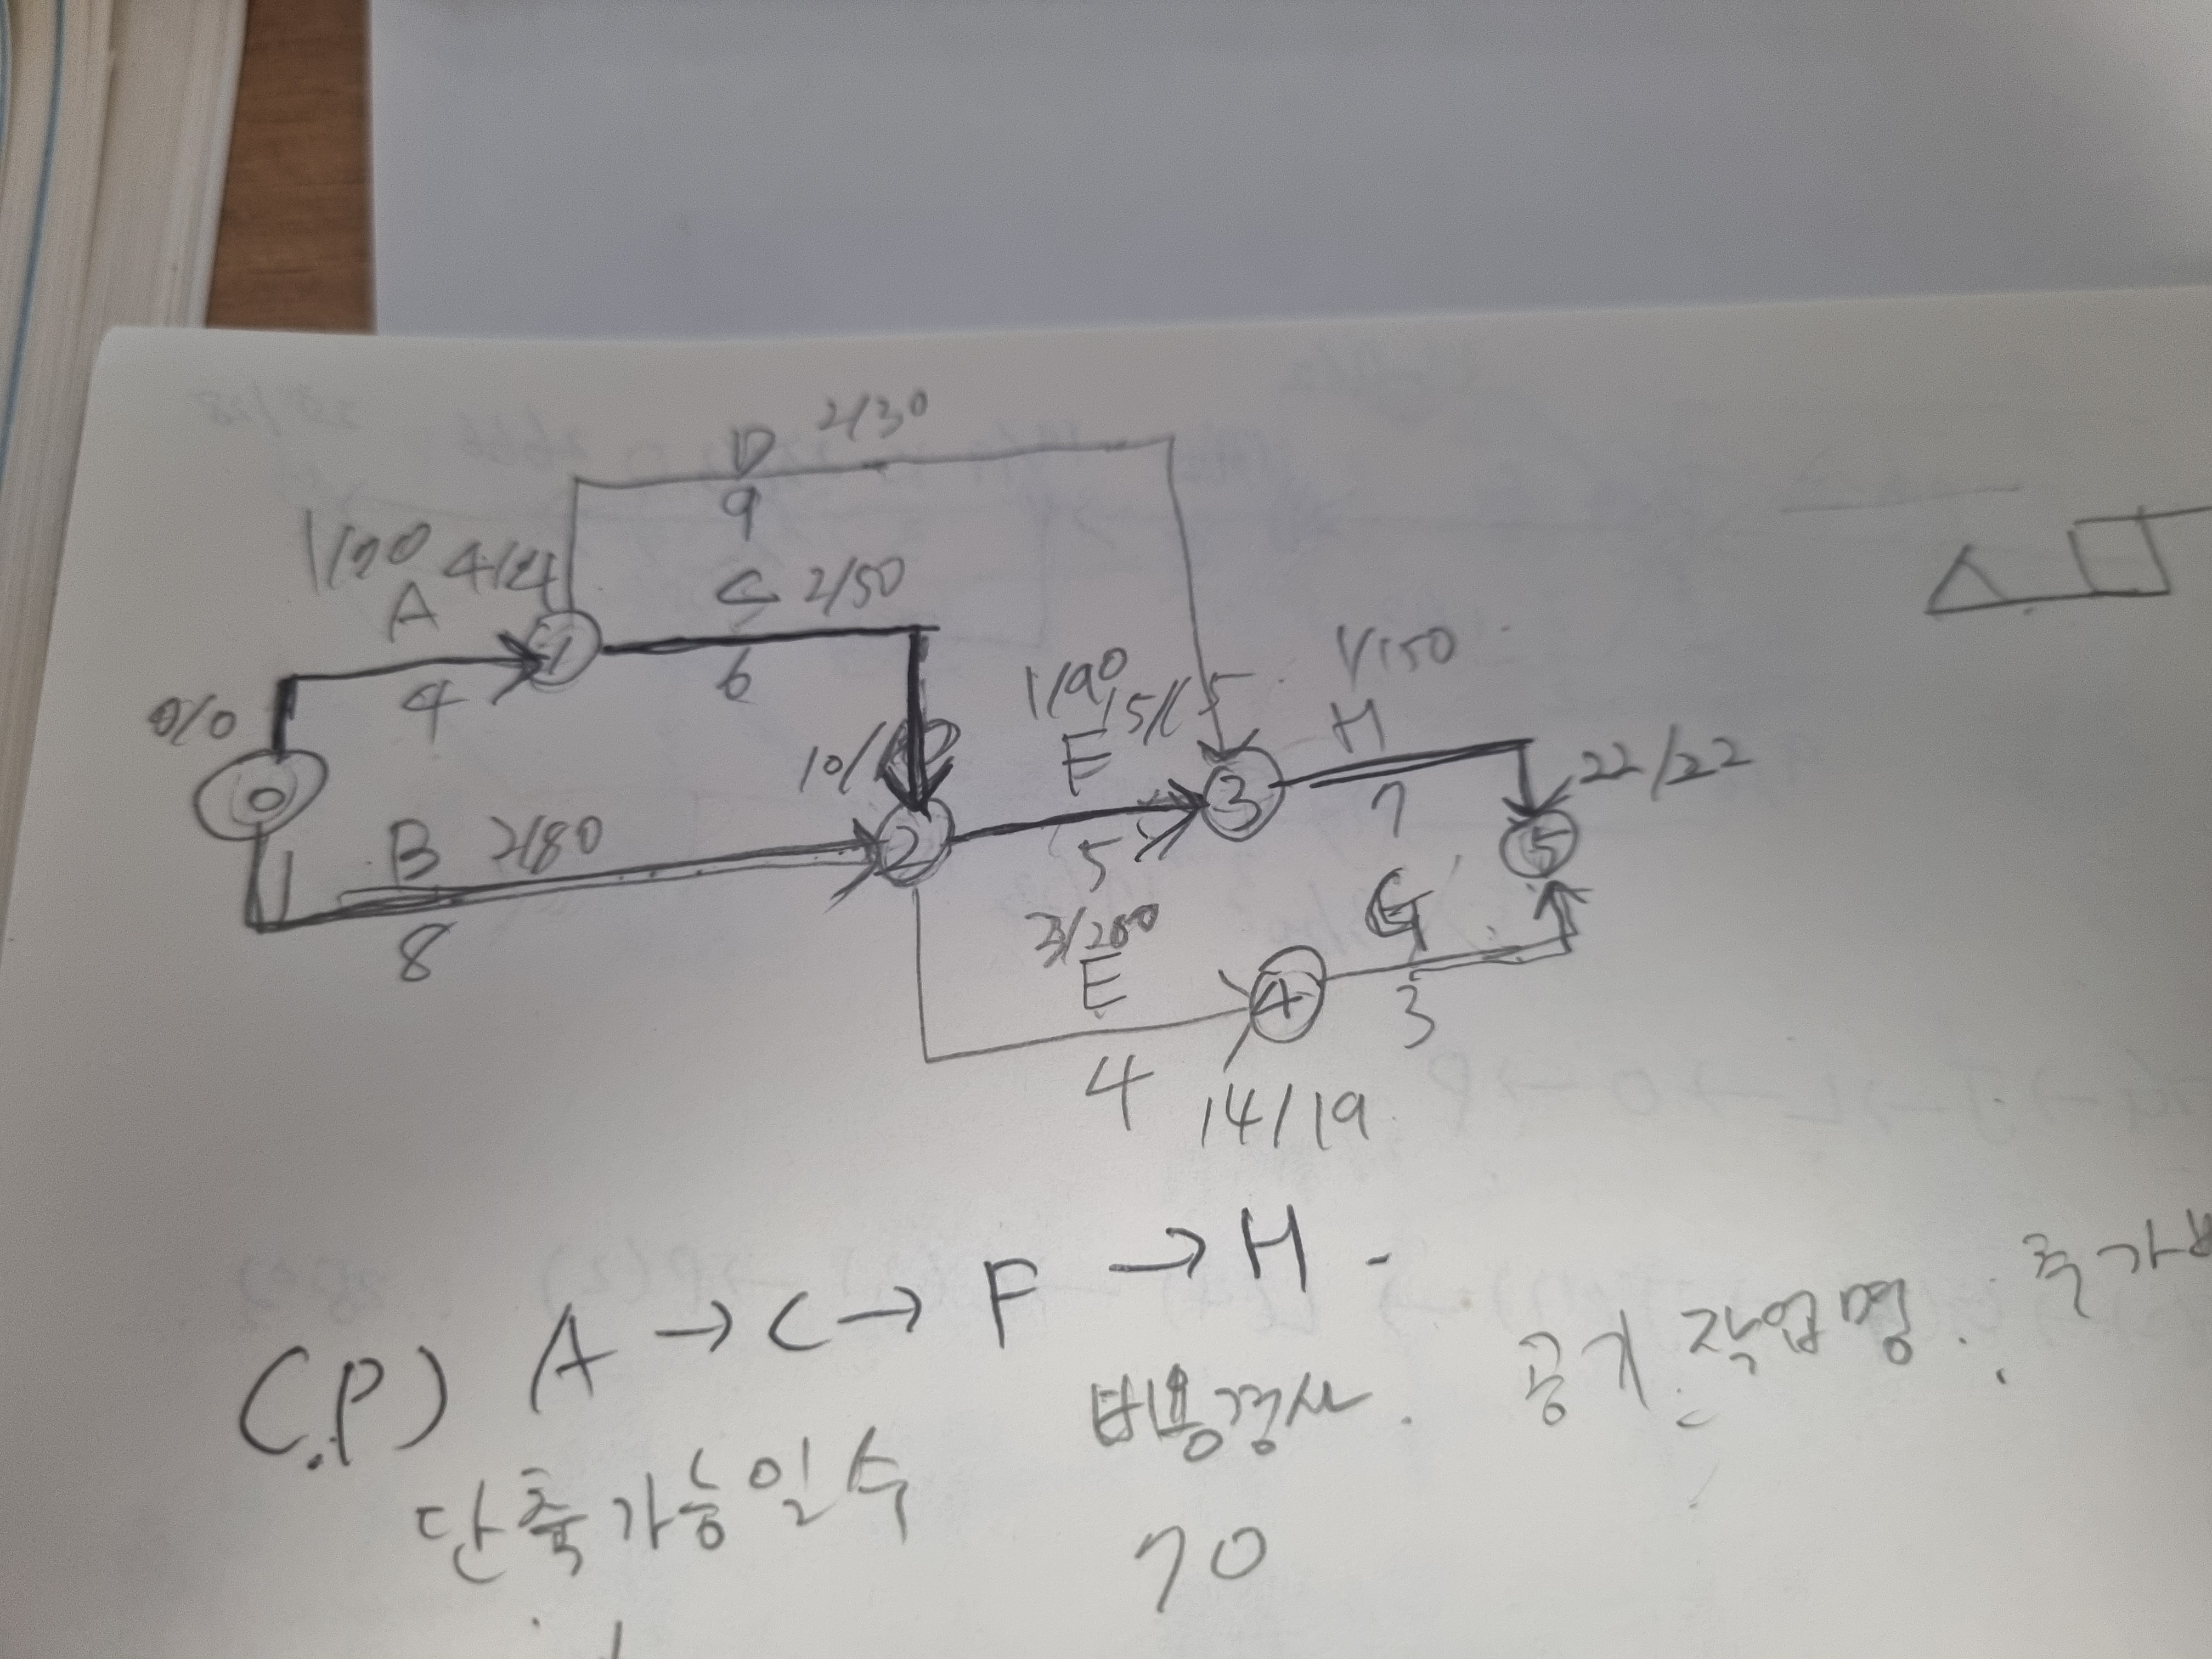 D 2/30
9
1/70 4/4
A
4
C 2/50
6
0/0
0
1
10/
B 2/80
8
2
1/90
E 15/15
5
3
1/150
H
7
22/22
5
3/200
E
4
4
14/19
G
3
C.P) A → C → F → H
단축가능일수 비용경사. 공기 작업명. 추가비
70